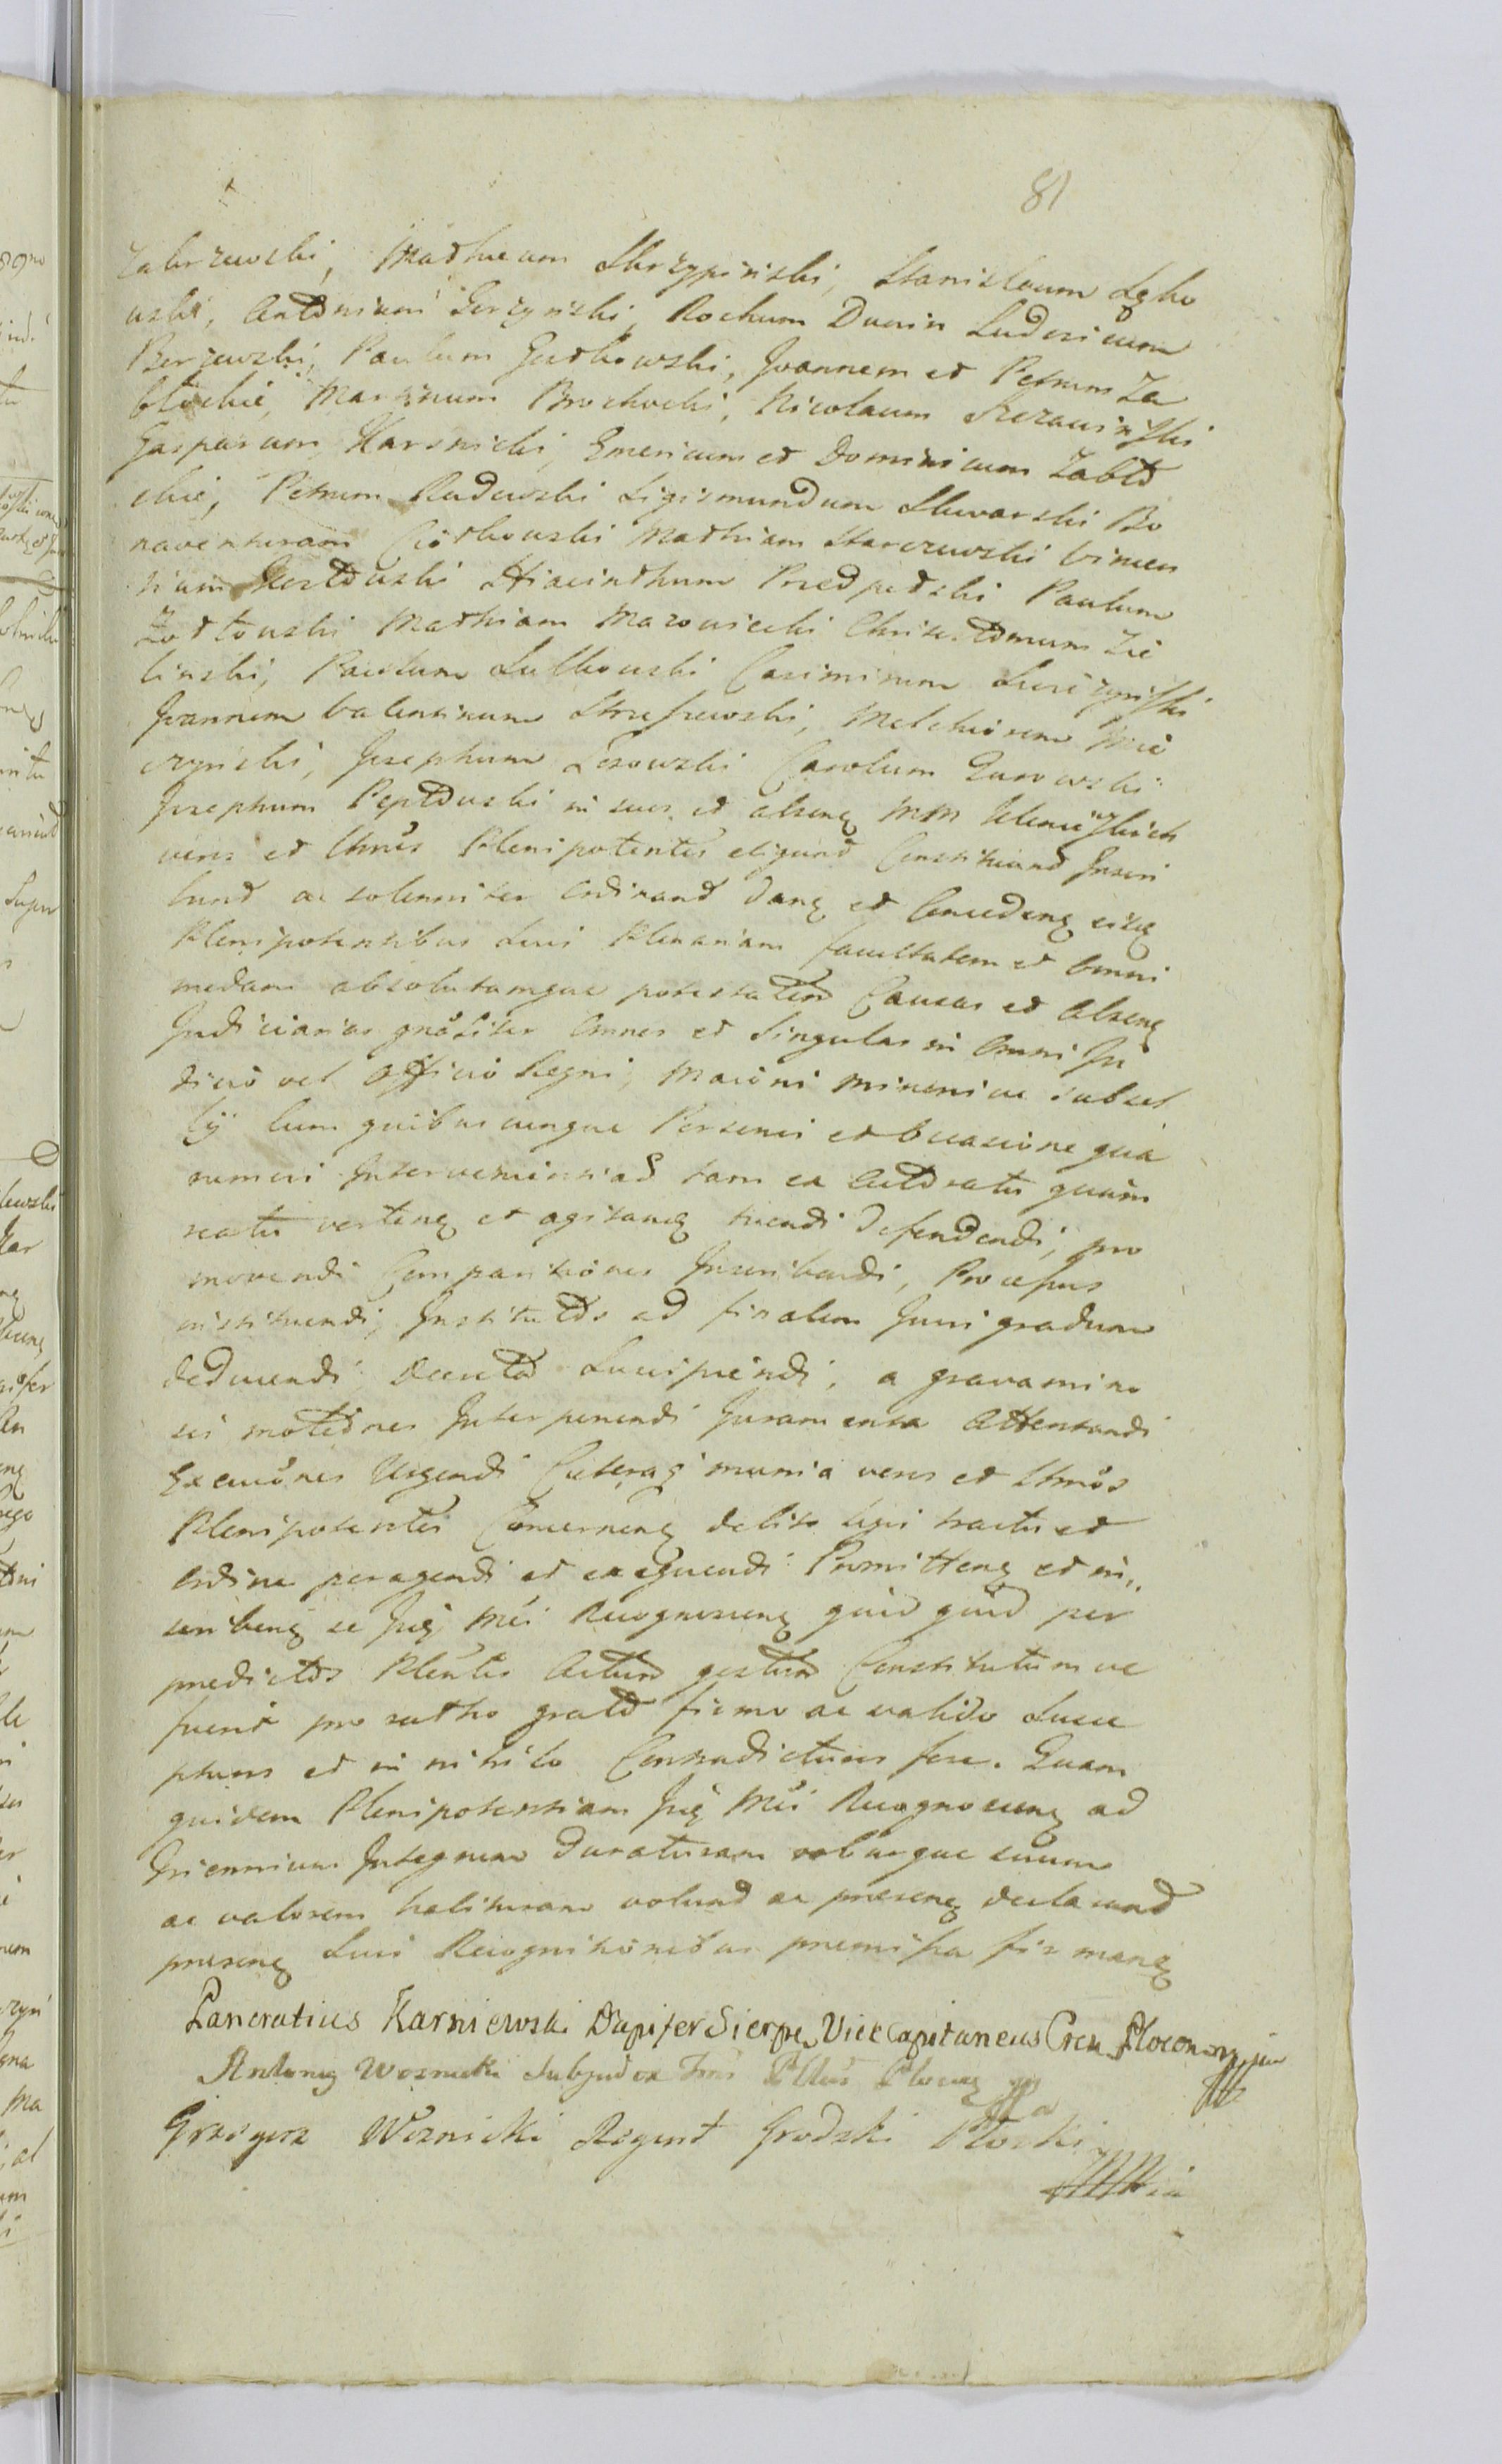 81
Zakrzewski, Mathaeum Skrzypiński, Stanislaum Lęho
wski, Antonium Gorzyński, Rochum Dunin Ludovicum
Borzewski, Paulum Gutkowski, Joannem et Petrum Za
błockie, Martinum Brochocki, Nicolaum Szczawiński
Gasparum Karsnicki, Emericum et Dominicum Zabło
ckie, Petrum Radowski Sigismundum Skwarski Bo
naventuram Ciotkowski Mathiam Starczewski Vincen
tium Kostowski Hiacinthum Przedpełski Paulum
Zołtowski Mathiam Mazowiecki Chrisostomum Zie
linski, Paulum Sulkowski Casimirum
Joannem Valentinum Strusrewski, Melchiorem Mie
czyński, Josephum Losowski Carolum Gurowski
Josephum Peptowski in suos et absen MM
veros et Lttmos Plenipotentes eligund Constituund Inscri
bund ac solenniter Ordinand Dans et Conceden eisq
Plenipotentibus Suis Plenariam facultatem et Omni
modam absolutamque potestatem Causas et Absens
Judiciarias gnaliter Omnes et Singulas in Omni Ju
dicio vel Officio Regni, Maiori Minorive subsel
lij Cum quibuscunque Personis et Occasione qua
numcui Intervenient ad tam ex Actoratu quam
reatu verten et agitan tuendi Defendendi, pro
movendi Comparitiones Inscribendi, Processus
instituendi, Institutos ad finalem Juris gradum
deducendi Decreta Suscipiendi, a gravamine
sei motiones Interponendi Juramenta Attentandi
Execuones Urgendi Caeteraq munia veros et Lttmos
Plenipotentes Concernen debito legis tractu et
Ordine peragendi et exequendi Promitten et in„
scriben se Jidem Mci Recognoscen quid quid per
predictos Plentes Actum gestum Constitutumve
fuerit pro ratho grato firmo ac valido Susce
pturos et in nihilo Contradicturos fore. Quam
quidem Plenipotentiam Jidem Mci Recognoscen ad
Triennium Integrum Duraturam roburque suum
ac valorem habituram volund ac presen declarand
presen Suis Recognitionibus premissa firman
Pancratius Karniewski Dapifer Sierpc Vice Capitaneus Cren Plocen mpp
Antony Woznicki Subjudex Trris Pltus Plocen mpp
Grzegorz Woznicki Regent Grodzki Płocki